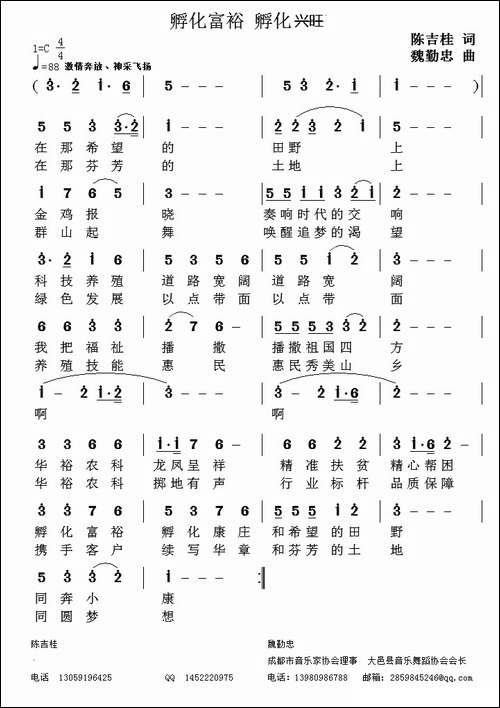 孵化富裕 孵化兴旺
1=C 4/4
陈吉桂 词
♩=88 激情奔放、神采飞扬
魏勤忠 曲
( 3· 2 1· 6 | 5 - - - | 5 3 5 1 | 1 - - - )
5 5 3 3·2 | 1 - - - | 2·2 3 2 | 5 - - -
在 那 希 望 的 田野 上
在 那 芬 芳 的 土地 上
1 7 6 5 | 3 - - - | 5 5 1 1 3 2 1 | 2 - - -
金 鸡 报 晓 奏响时代的交 响
群 山 起 舞 唤醒追梦的渴 望
3· 2 1 6 | 5 3 5 6 | 5 5 1 2 | 3 - - -
科 技 养 殖 道 路 宽 阔 道 路 宽 阔
绿 色 发 展 以 点 带 面 以 点 带 面
6 6 3 3 | 2 7 6 - | 5 5 5 3 3 2 | 2 - - -
我 把 福 祉 播 撒 播撒祖国四 方
养 殖 技 能 惠 民 惠民秀美山 乡
1 - 2 1·2 | 3 - - - | 3 - 2 1·6 | 2 - - -
啊 啊
3 3 6 6 | 1·1 7 6 - | 6 6 2 2 | 3 1·6 2 -
华 裕 农 科 龙凤呈 祥 精 准 扶 贫 精心帮困
华 裕 农 科 掷地有 声 行 业 标 杆 品质保障
3 2 1 6 | 5 3 5 6 | 5 5 5 1 2 | 3 - - -
孵 化 富 裕 孵 化 康 庄 和希望的田 野
携 手 客 户 续 写 华 章 和芬芳的土 地
5 3 3 2 | 1 - - - :||
同 奔 小 康
同 圆 梦 想
陈吉桂 魏勤忠
成都市音乐家协会理事 大邑县音乐舞蹈协会会长
电话 13059196425 QQ 1452220975 电话：13980986788 邮箱：2859845246@qq.com